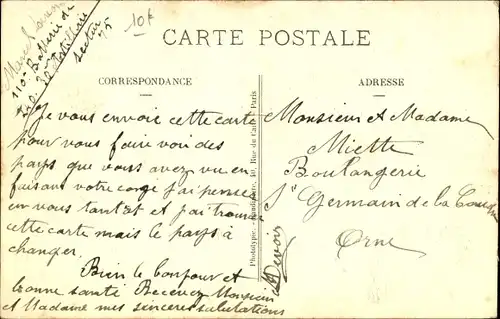 10f
110e Batterie de
30e d'Artillerie
secteur 75
CARTE POSTALE
CORRESPONDANCE
ADRESSE
Je vous envoie cette carte
pour vous faire voir des
pays que vous avez vu en
faisant votre congé j'ai pensée
en vous tantôt et j'ai trouver
cette carte mais le pays à
changer.
Bien le bonjour et
bonne santé Recevez Monsieur
et Madame mes sincères salutations
Phototype. 10, Rue du Caire - Paris
Devoir
Monsieur et Madame
Miette
Boulangerie
St Germain de la Coudre
Orne